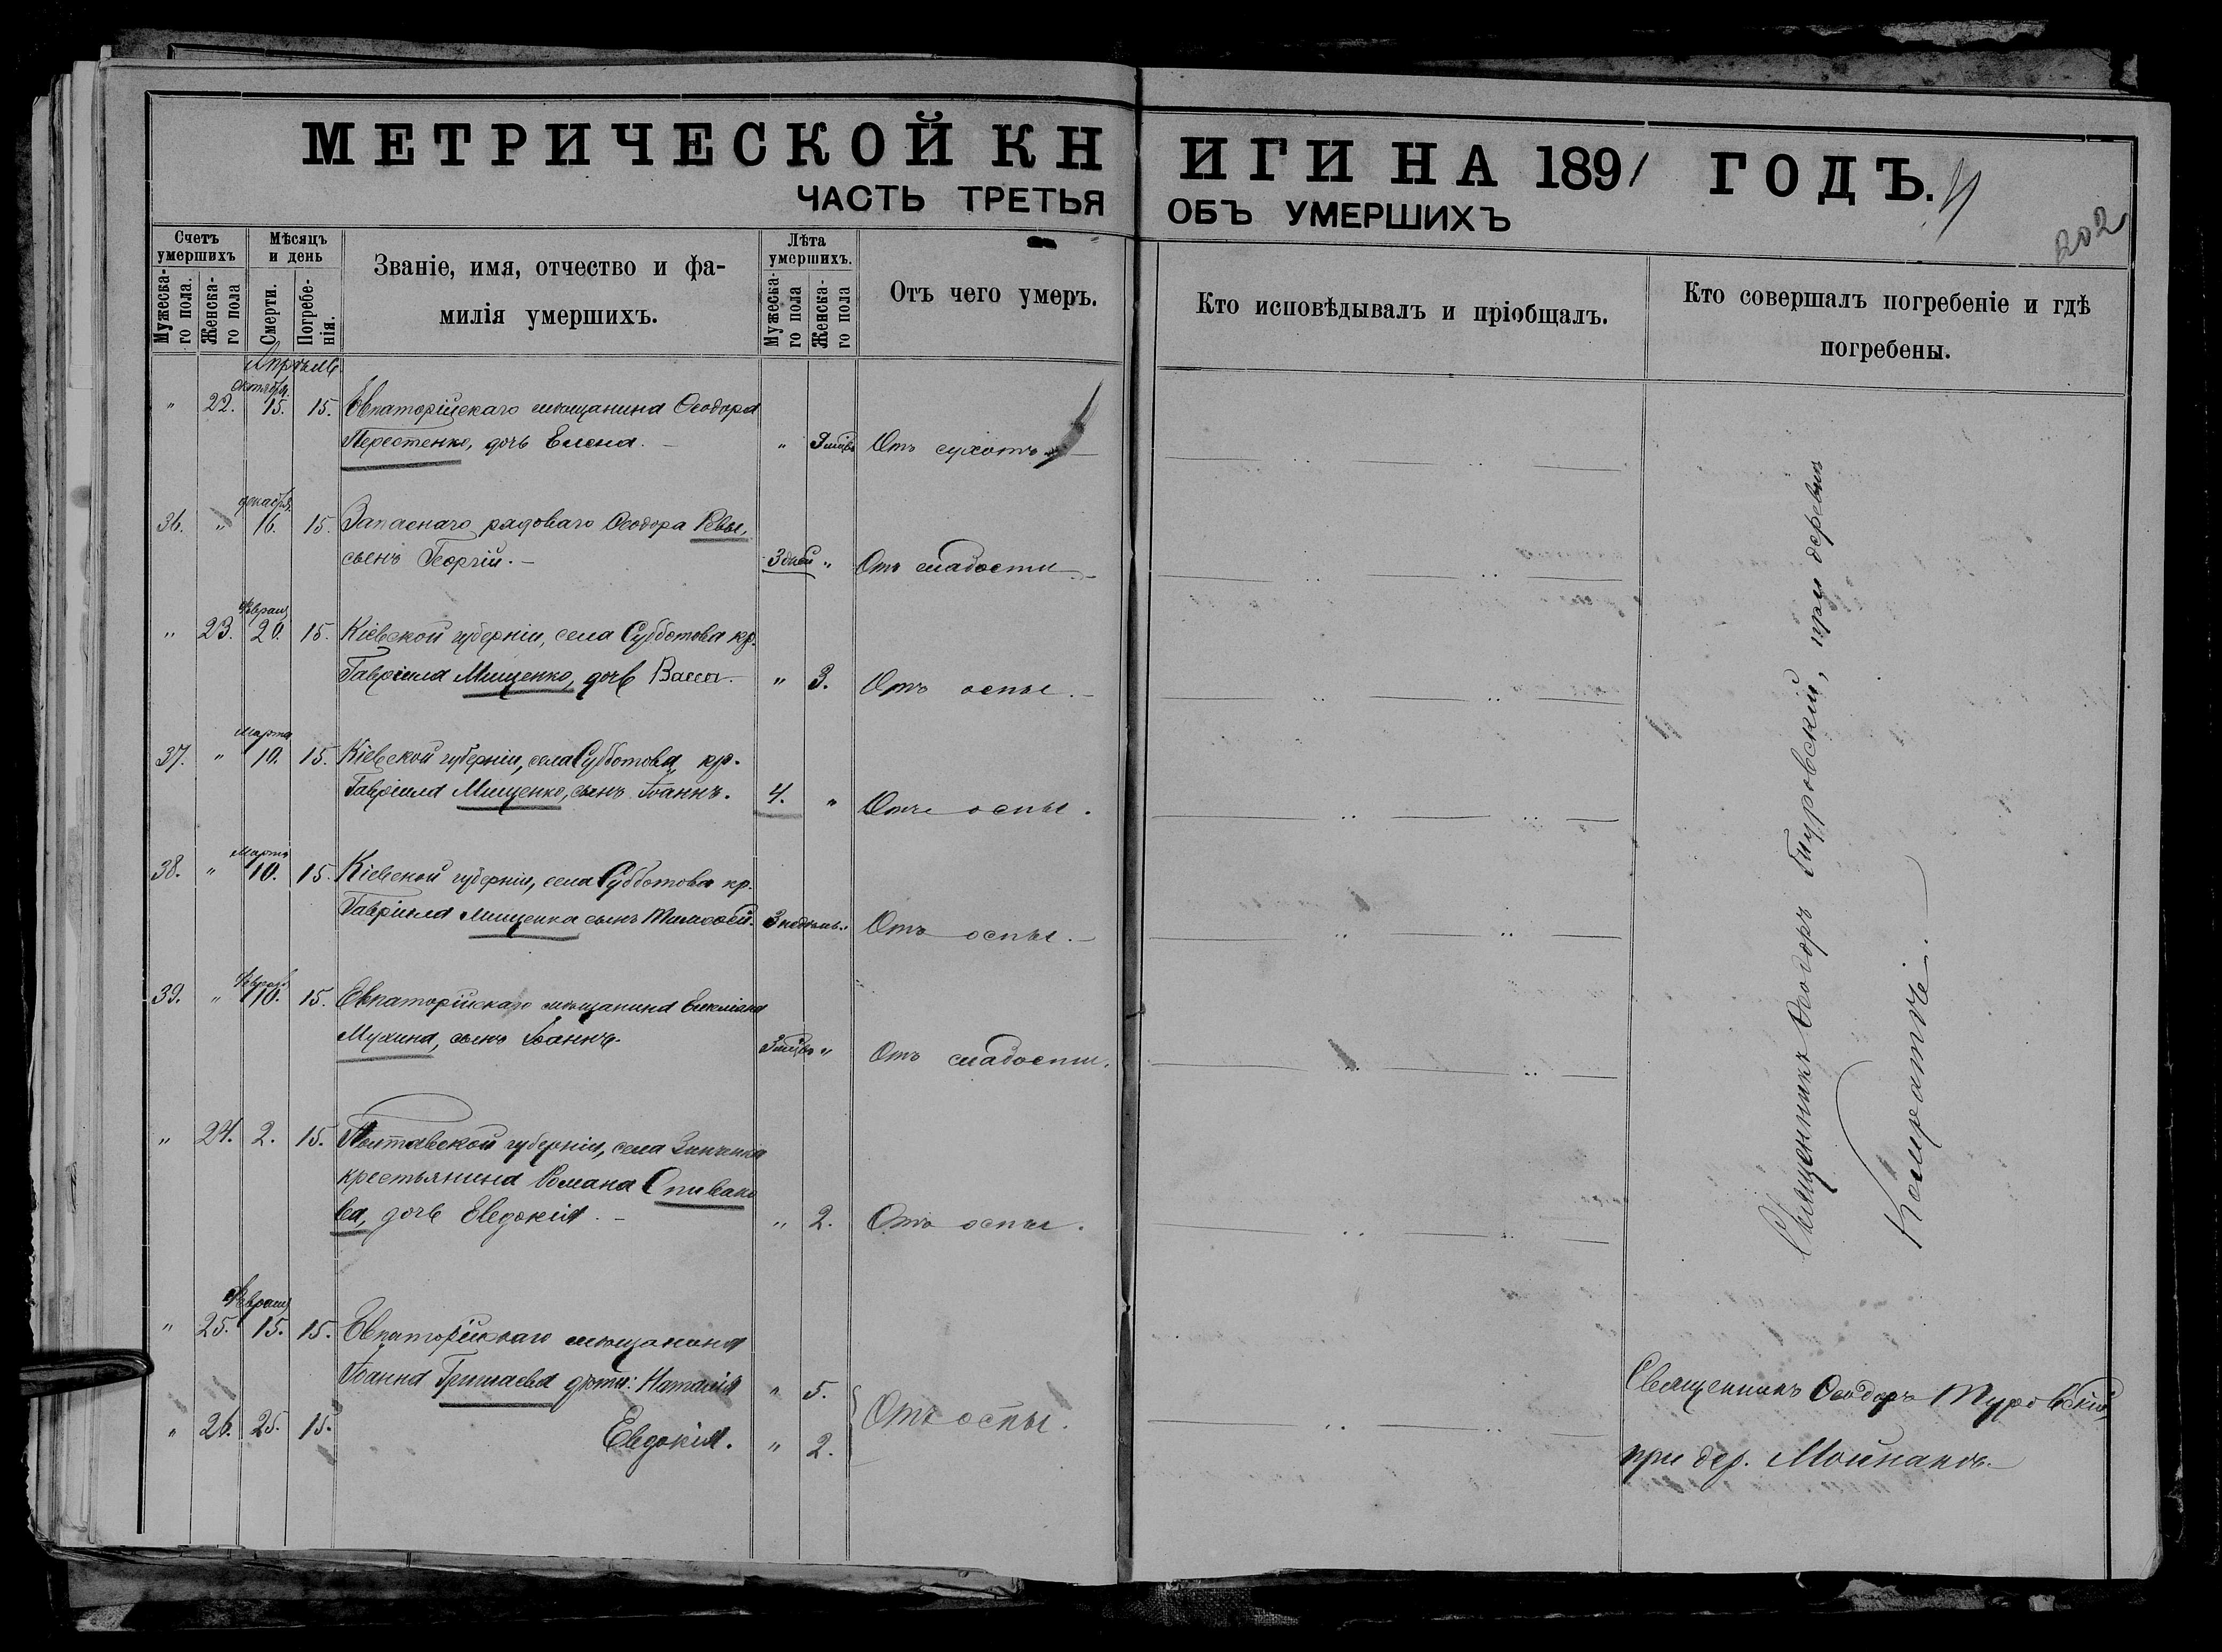 МЕТРИЧЕСКОЙ КНИГИ НА 1891 ГОДЪ.
ЧАСТЬ ТРЕТЬЯ ОБЪ УМЕРШИХЪ
202
Счетъ умершихъ
Мужеска-го пола.
Женска-го пола
Мѣсяцъ и день
Смерти.
Погребе-нія.
Званіе, имя, отчество и фа-
милія умершихъ.
Лѣта умершихъ.
Мужеска-го пола
Женска-го пола
Отъ чего умеръ.
Кто исповѣдывалъ и пріобщалъ.
Кто совершалъ погребеніе и гдѣ
погребены.
Апрѣль
октября
" 22. 15. 15. Евпаторійскаго мѣщанина Ѳеодора
Перестенко, дочь Елена. " Отъ сухотъ
декабря
36. " 16. 15. Запаснаго рядоваго Ѳеодора Ревы,
сынъ Георгій. 3 дней " Отъ слабости
Февраля
" 23. 20. 15. Кіевской губерніи, села Субботова кр.
Гавріила Мищенко, дочь Васса. " 3. Отъ оспы.
Марта
37. " 10. 15. Кіевской губерніи, села Субботова кр.
Гавріила Мищенко, сынъ Іоаннъ. 4. " Отъ оспы.
Марта
38. " 10. 15. Кіевской губерніи, села Субботова кр.
Гавріила Мищенка сынъ Тимоѳей. 3 недѣль " Отъ оспы.
Февраля
39. " 10. 15. Евпаторійскаго мѣщанина
Мухина, сынъ Іоаннъ. " Отъ слабости.
" 24. 2. 15. Полтавской губерніи, села
крестьянина Романа Спивако
ва, дочь Евдокія. " 2. Отъ оспы.
Февраля
" 25. 15. 15. Евпаторійскаго мѣщанина
Іоанна Гришаева дѣти: Наталія " 5.
Отъ оспы.
" 26. 25. 15. Евдокія. " 2.
Священникъ Ѳеодоръ Туровскій, при деревнѣ
Священникъ Ѳеодоръ Туровскій,
при дер. Мойнакъ.